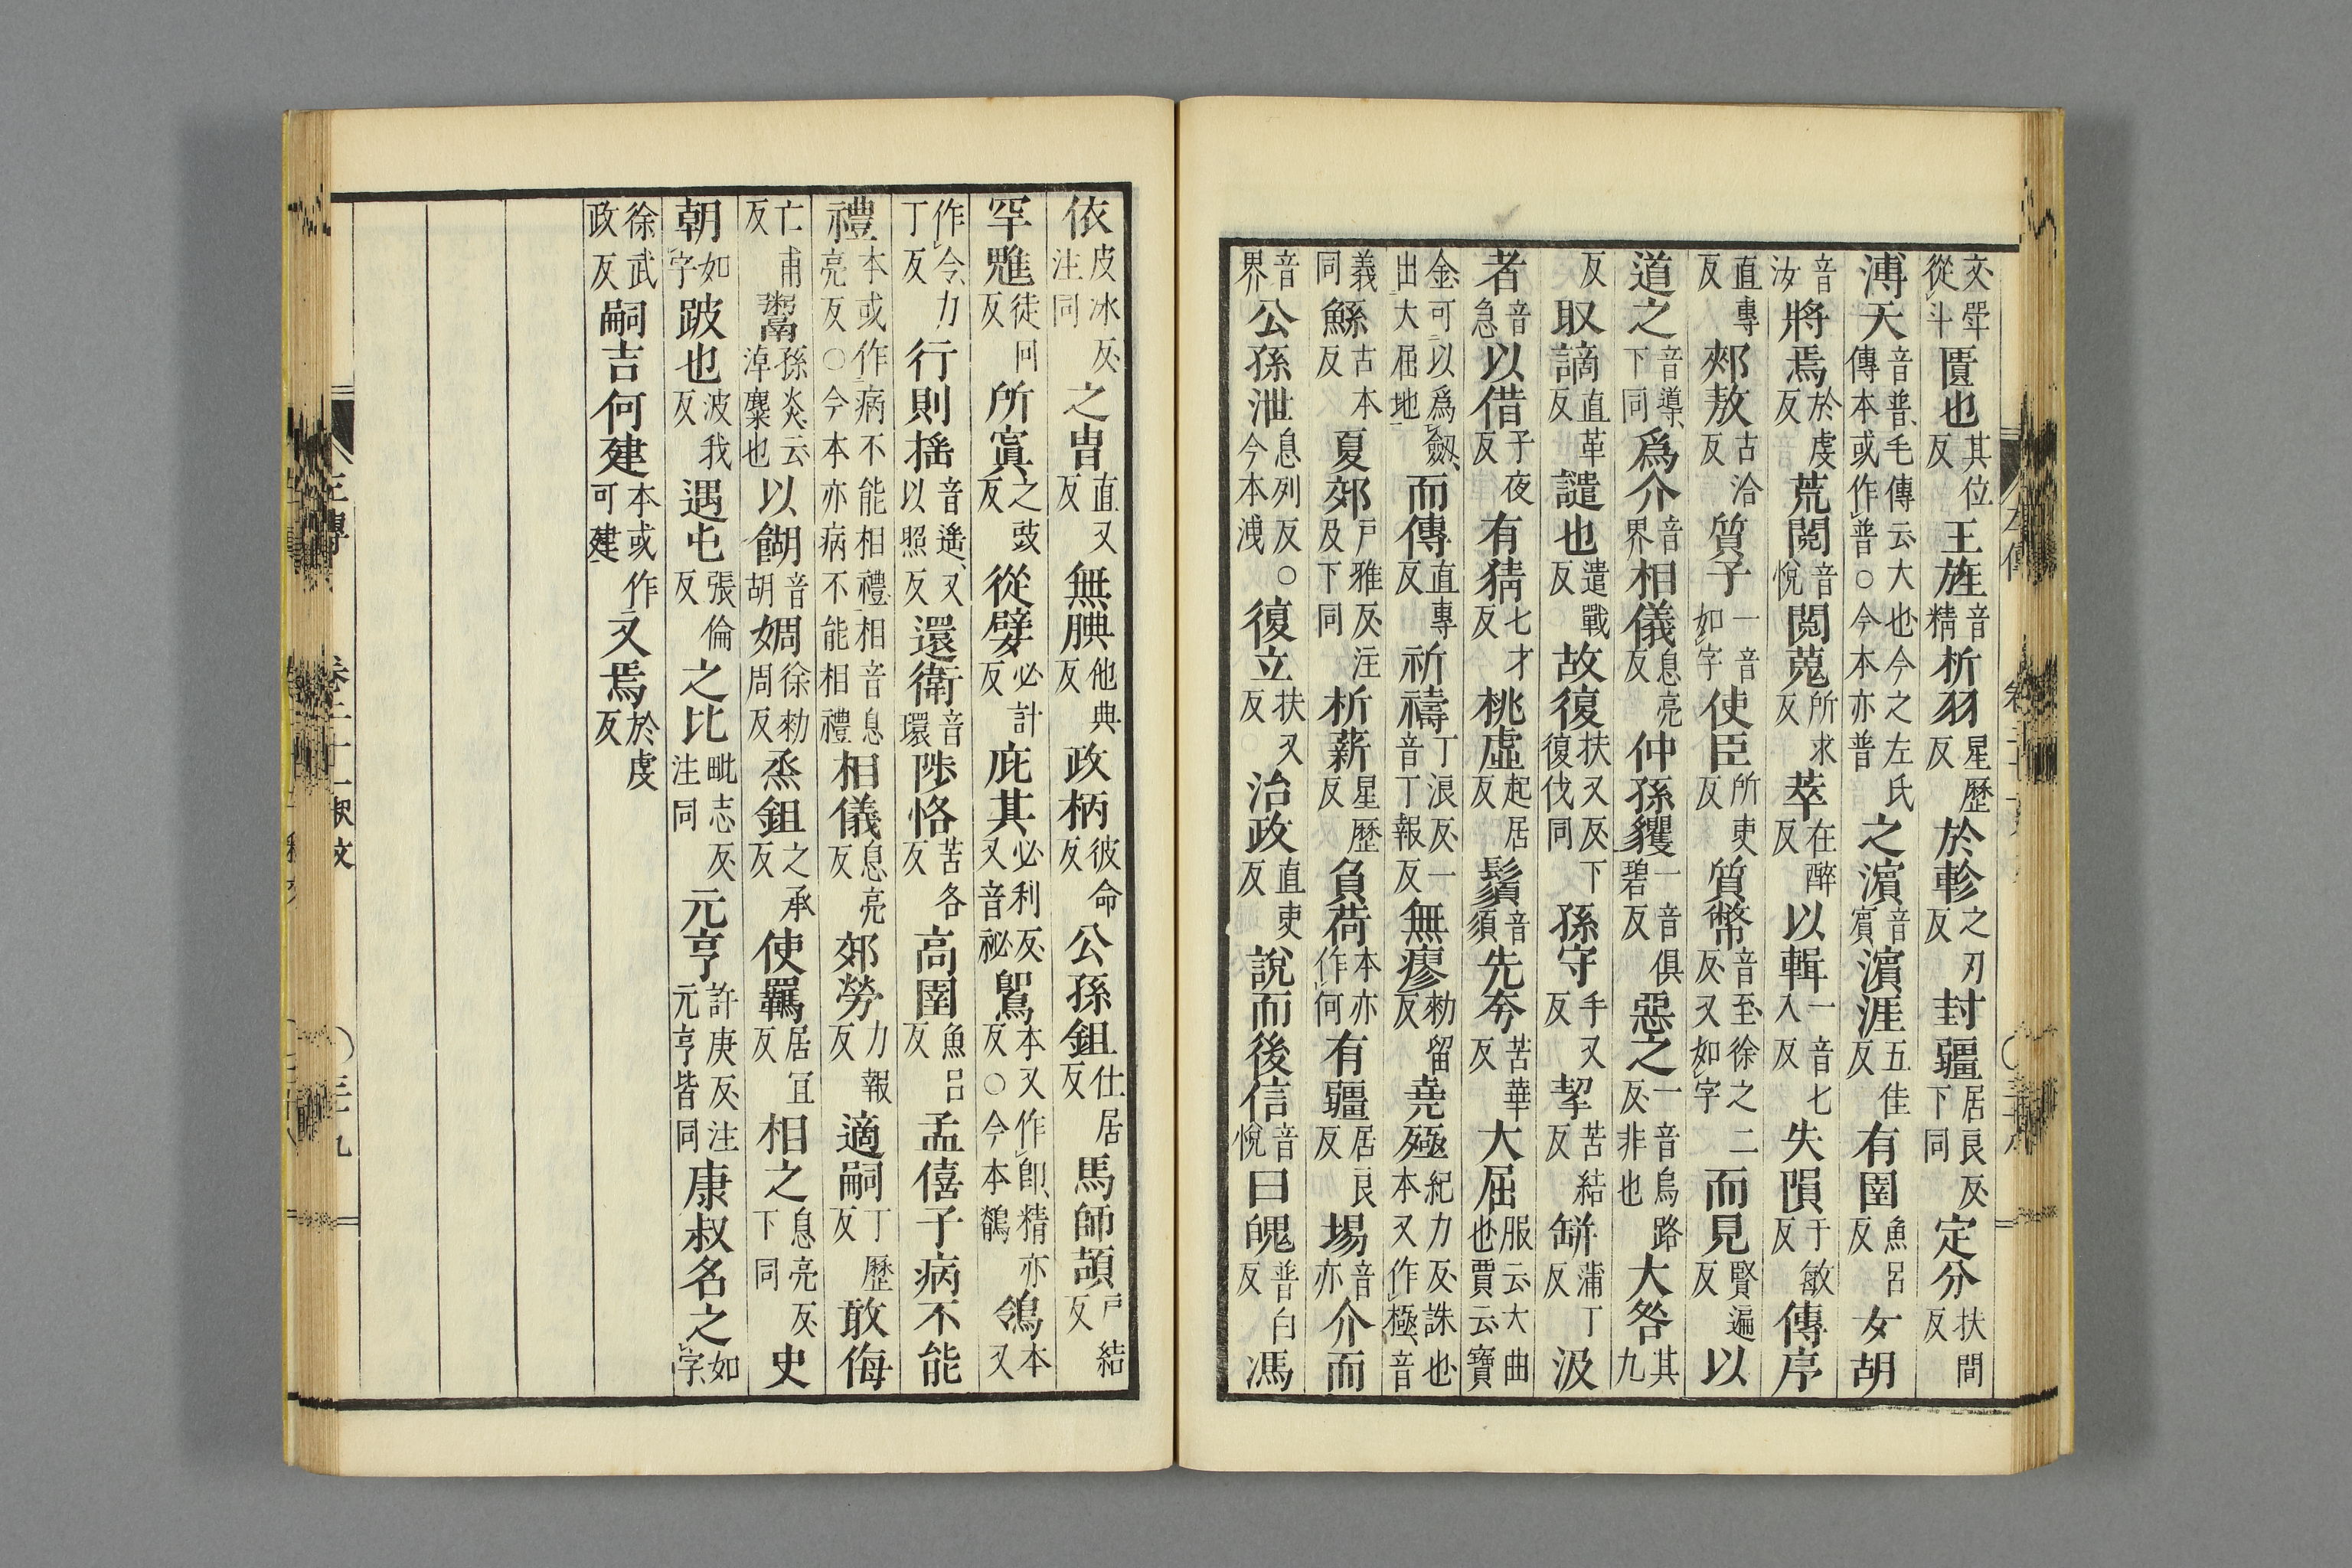 交斝從斗匱也其位反王旌音精析羽星歷反於軫之刃反封疆居良反下同定分扶問反
溥天音普毛傳云大也今之左氏傳本或作普○今本亦普之濱音賓濱涯五佳反有圉魚呂反女胡
音汝將焉於虔反荒閱音悅閱蒐所求反萃在醉反以輯一音七入反失隕于敏反傳序
直專反郟敖古洽反質子一音如字使臣所吏反質幣音至徐之二反又如字而見賢遍反以
道之音導下同爲介音界相儀息亮反仲孫貜一音俱碧反惡之一音烏路反非也大咎其九
反取謫直革反譴也遣戰反故復扶又反下復伐同孫守手又反挈苦結反缾蒲丁反汲
者音急以借子夜反有猜七才反桃虛起居反鬚音須先夸苦華反大屈服云大曲也賈云寶
金可以爲劔出大屈地而傳直專反祈禱丁浪反一音丁報反無瘳勑留反堯殛紀力反誅也本又作極音
義同鯀古本反夏郊戶雅反注及下同析薪星歷反負荷本亦作何有疆居良反場音亦介而
音界公孫泄息列反○今本洩復立扶又反治政直吏反說而後信音悅曰魄普白反馮
依皮冰反注同之胄直又反無腆他典反政柄彼命反公孫鉏仕居反馬師頡戶結反
罕魋徒回反所寘之豉反從嬖必計反庇其必利反又音祕鴛本又作卽精亦反○今本鶺鴒本又
作令力丁反行則搖音遙又以照反還衛音環陟恪苦各反高圉魚呂反孟僖子病不能
禮本或作病不能相禮相音息亮反○今本亦病不能相禮相儀息亮反郊勞力報反適嗣丁歷反敢侮
亡甫反鬻孫炎云淖麋也以餬音胡婤徐勑周反烝鉏之承反使羈居宜反相之息亮反下同史
朝如字跛也波我反遇屯張倫反之比毗志反注同元亨許庚反注元亨皆同康叔名之如字
徐武政反嗣吉何建本或作可建又焉於虔反